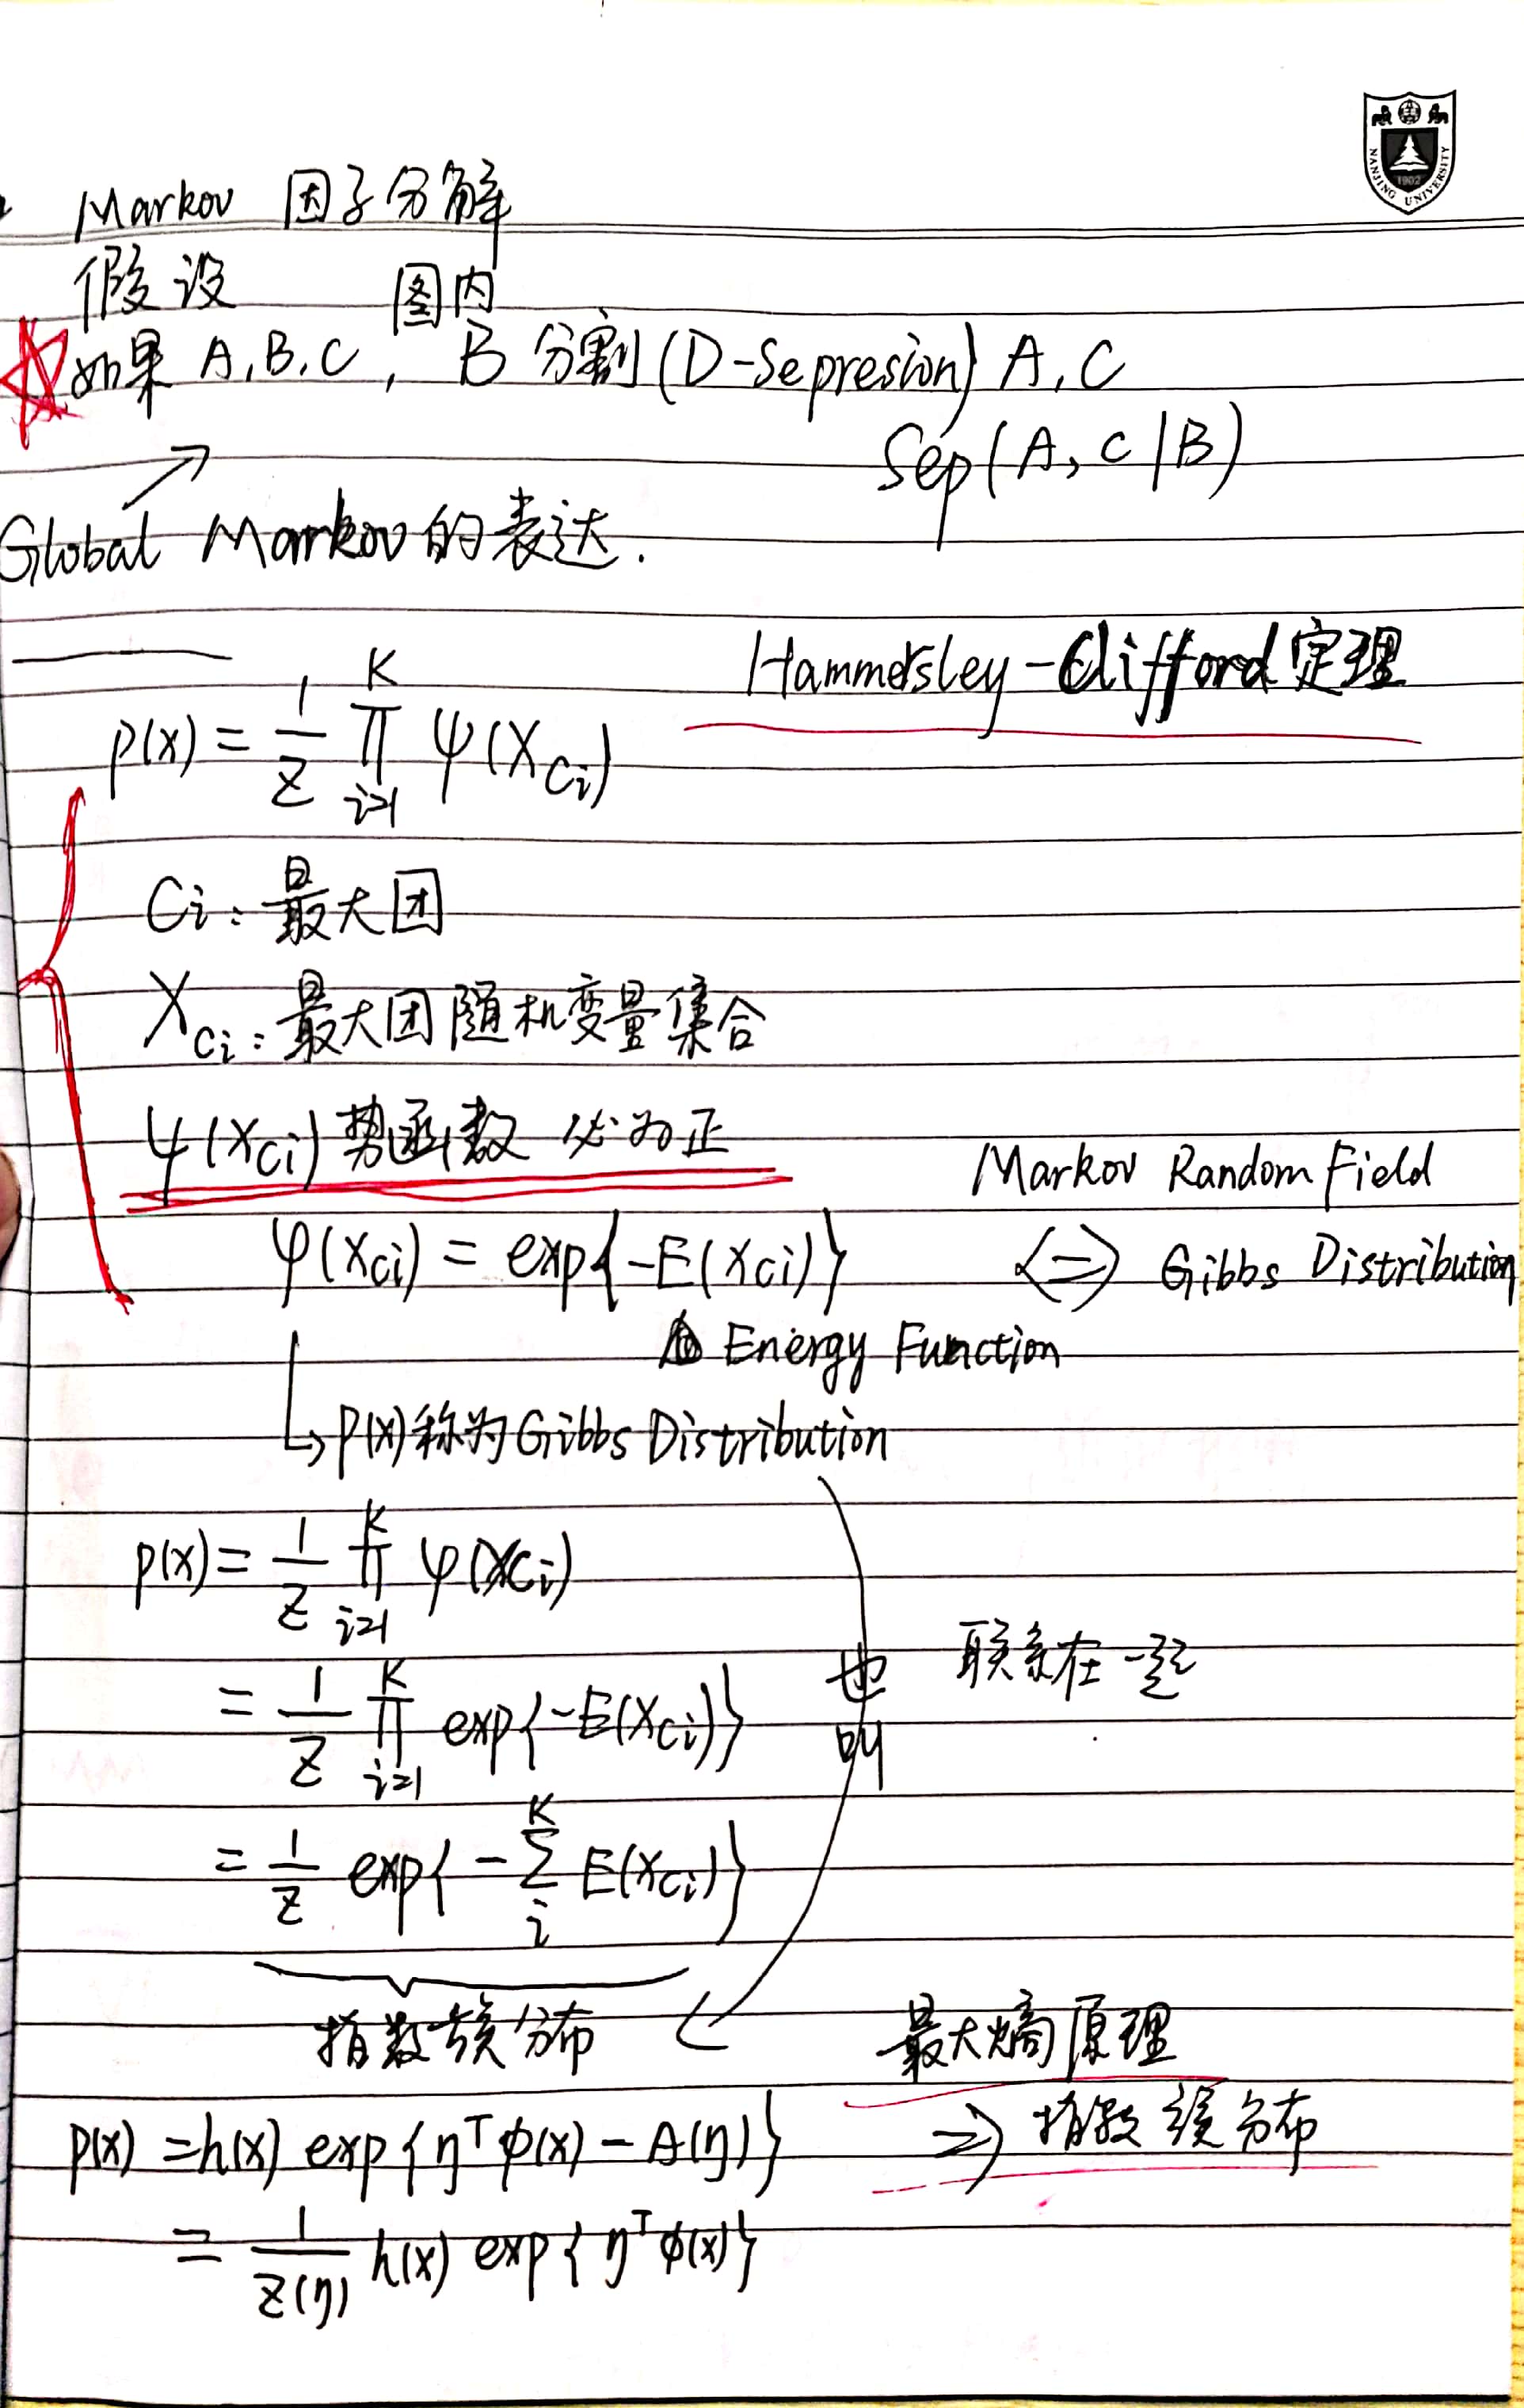 NANJING UNIVERSITY
1902
Markov 因子分解
假设 图内
如果 A,B,C, B 分割(D-Sepresion) A,C
Sep(A, C|B)
Global Markov 的表达.
Hammersley-Clifford 定理
p(x) = 1/Z ∏_{i=1}^{K} ψ(X_{Ci})
Ci: 最大团
X_{Ci}: 最大团随机变量集合
ψ(X_{Ci}) 势函数 必为正
Markov Random Field
φ(X_{Ci}) = exp{-E(X_{Ci})}
<=> Gibbs Distribution
Energy Function
↳ P(X)称为Gibbs Distribution
p(x) = 1/Z ∏_{i=1}^{K} φ(X_{Ci})
联系在一起
= 1/Z ∏_{i=1}^{K} exp{-E(X_{Ci})}
也叫
= 1/Z exp{-∑_{i}^{K} E(X_{Ci})}
指数族分布
最大熵原理
p(x) = h(x) exp{η^T φ(x) - A(η)}
=> 指数族分布
= 1/Z(η) h(x) exp{η^T φ(x)}